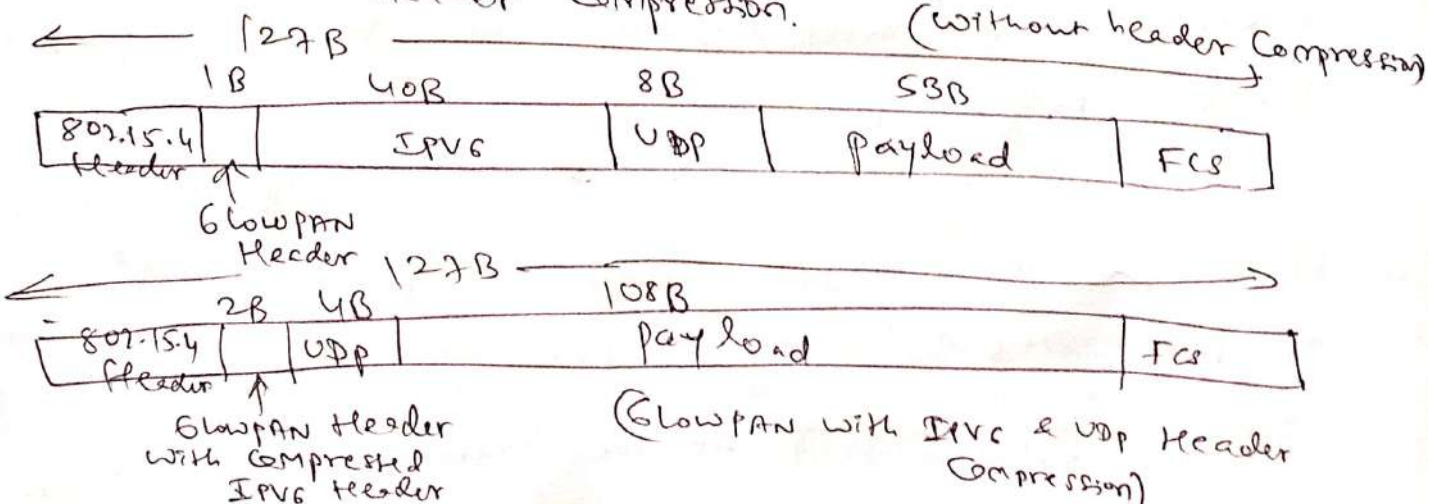 of Compression. (without header Compression)
127B
1B 40B 8B 53B
802.15.4 Header IPV6 UDP Payload FCS
6LowPAN
Header
127B
2B 4B 108B
802.15.4 Header UDP Payload FCS
6LowPAN Header
with compressed
IPV6 Header
(6LowPAN with IPV6 & UDP Header
Compression)